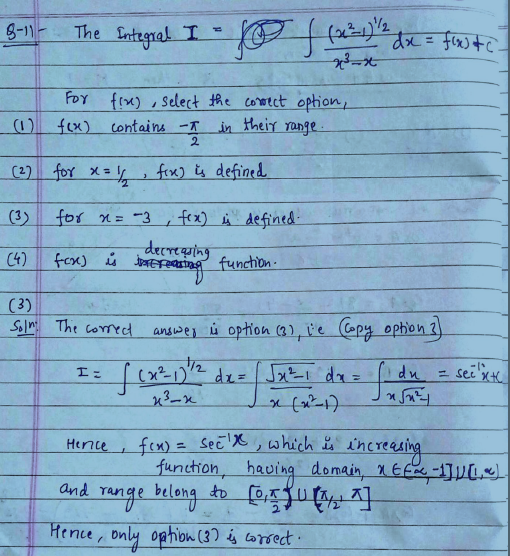 Q-11 - The Integral I = ∫ (x²-1)^1/2 / x³-x dx = f(x) + C
For f(x), select the correct option,
(1) f(x) contains -π/2 in their range.
(2) for x = 1/2, f(x) is defined
(3) for x = -3, f(x) is defined.
(4) f(x) is decreasing function.
(3)
Soln: The correct answer is option (3), i.e (Copy option 3)
I = ∫ (x²-1)^1/2 / x³-x dx = ∫ √x²-1 / x (x²-1) dx = ∫ 1 dx / x√x²-1 = sec⁻¹x+c
Hence, f(x) = sec⁻¹x, which is increasing
function, having domain, x ∈ (-∞, -1] ∪ [1, ∞)
and range belong to [0, π/2) ∪ (π/2, π]
Hence, only option (3) is correct.